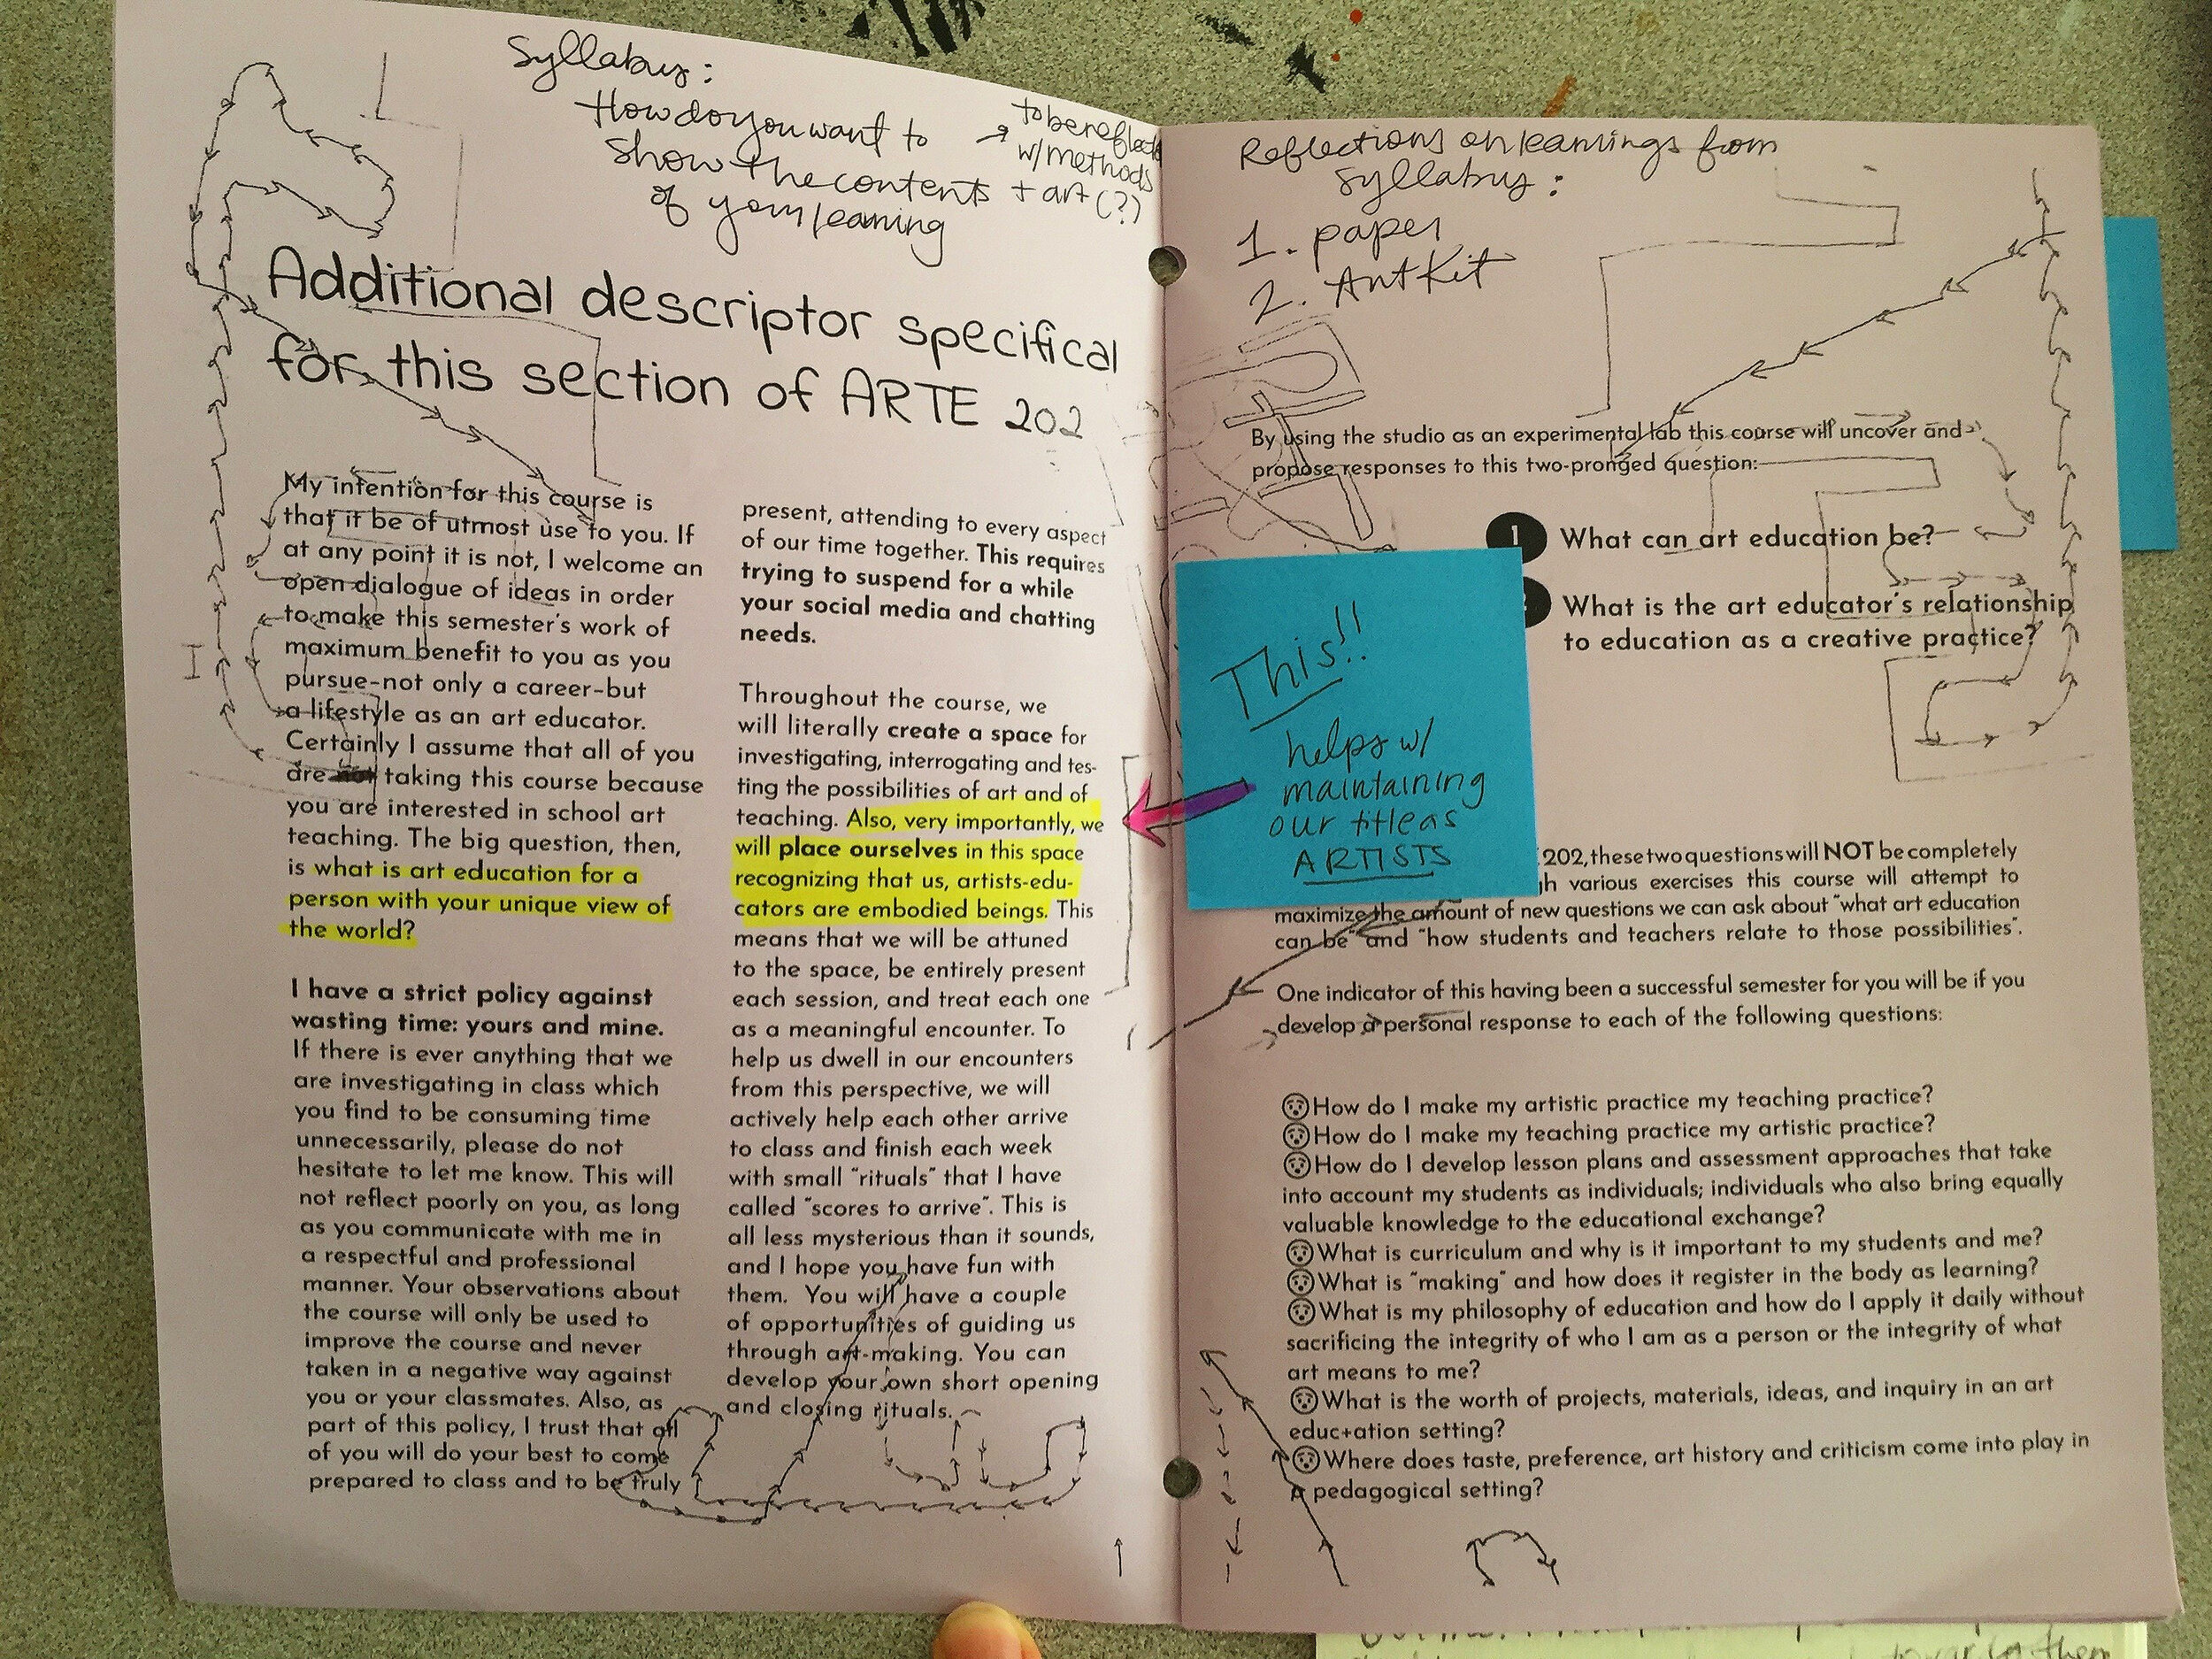 Syllabus:
How do you want to
show the contents
of your learning
→ to be reflect
w/ methods
+ art (?)
Additional descriptor specifical
for this section of ARTE 202
My intention for this course is
that it be of utmost use to you. If
at any point it is not, I welcome an
open dialogue of ideas in order
to make this semester's work of
maximum benefit to you as you
pursue–not only a career–but
a lifestyle as an art educator.
Certainly I assume that all of you
are not taking this course because
you are interested in school art
teaching. The big question, then,
is what is art education for a
person with your unique view of
the world?
I have a strict policy against
wasting time: yours and mine.
If there is ever anything that we
are investigating in class which
you find to be consuming time
unnecessarily, please do not
hesitate to let me know. This will
not reflect poorly on you, as long
as you communicate with me in
a respectful and professional
manner. Your observations about
the course will only be used to
improve the course and never
taken in a negative way against
you or your classmates. Also, as
part of this policy, I trust that all
of you will do your best to come
prepared to class and to be truly
present, attending to every aspect
of our time together. This requires
trying to suspend for a while
your social media and chatting
needs.
Throughout the course, we
will literally create a space for
investigating, interrogating and tes-
ting the possibilities of art and of
teaching. Also, very importantly, we
will place ourselves in this space
recognizing that us, artists-edu-
cators are embodied beings. This
means that we will be attuned
to the space, be entirely present
each session, and treat each one
as a meaningful encounter. To
help us dwell in our encounters
from this perspective, we will
actively help each other arrive
to class and finish each week
with small "rituals" that I have
called "scores to arrive". This is
all less mysterious than it sounds,
and I hope you have fun with
them. You will have a couple
of opportunities of guiding us
through art-making. You can
develop your own short opening
and closing rituals.
Reflections on learnings from
Syllabus:
1. paper
2. Art Kit
By using the studio as an experimental lab this course will uncover and
propose responses to this two-pronged question:
1 What can art education be?
What is the art educator's relationship
to education as a creative practice?
This!!
helps w/
maintaining
our title as
ARTISTS
202, these two questions will NOT be completely
gh various exercises this course will attempt to
maximize the amount of new questions we can ask about "what art education
can be" and "how students and teachers relate to those possibilities".
One indicator of this having been a successful semester for you will be if you
develop a personal response to each of the following questions:
How do I make my artistic practice my teaching practice?
How do I make my teaching practice my artistic practice?
How do I develop lesson plans and assessment approaches that take
into account my students as individuals; individuals who also bring equally
valuable knowledge to the educational exchange?
What is curriculum and why is it important to my students and me?
What is "making" and how does it register in the body as learning?
What is my philosophy of education and how do I apply it daily without
sacrificing the integrity of who I am as a person or the integrity of what
art means to me?
What is the worth of projects, materials, ideas, and inquiry in an art
educ+ation setting?
Where does taste, preference, art history and criticism come into play in
a pedagogical setting?